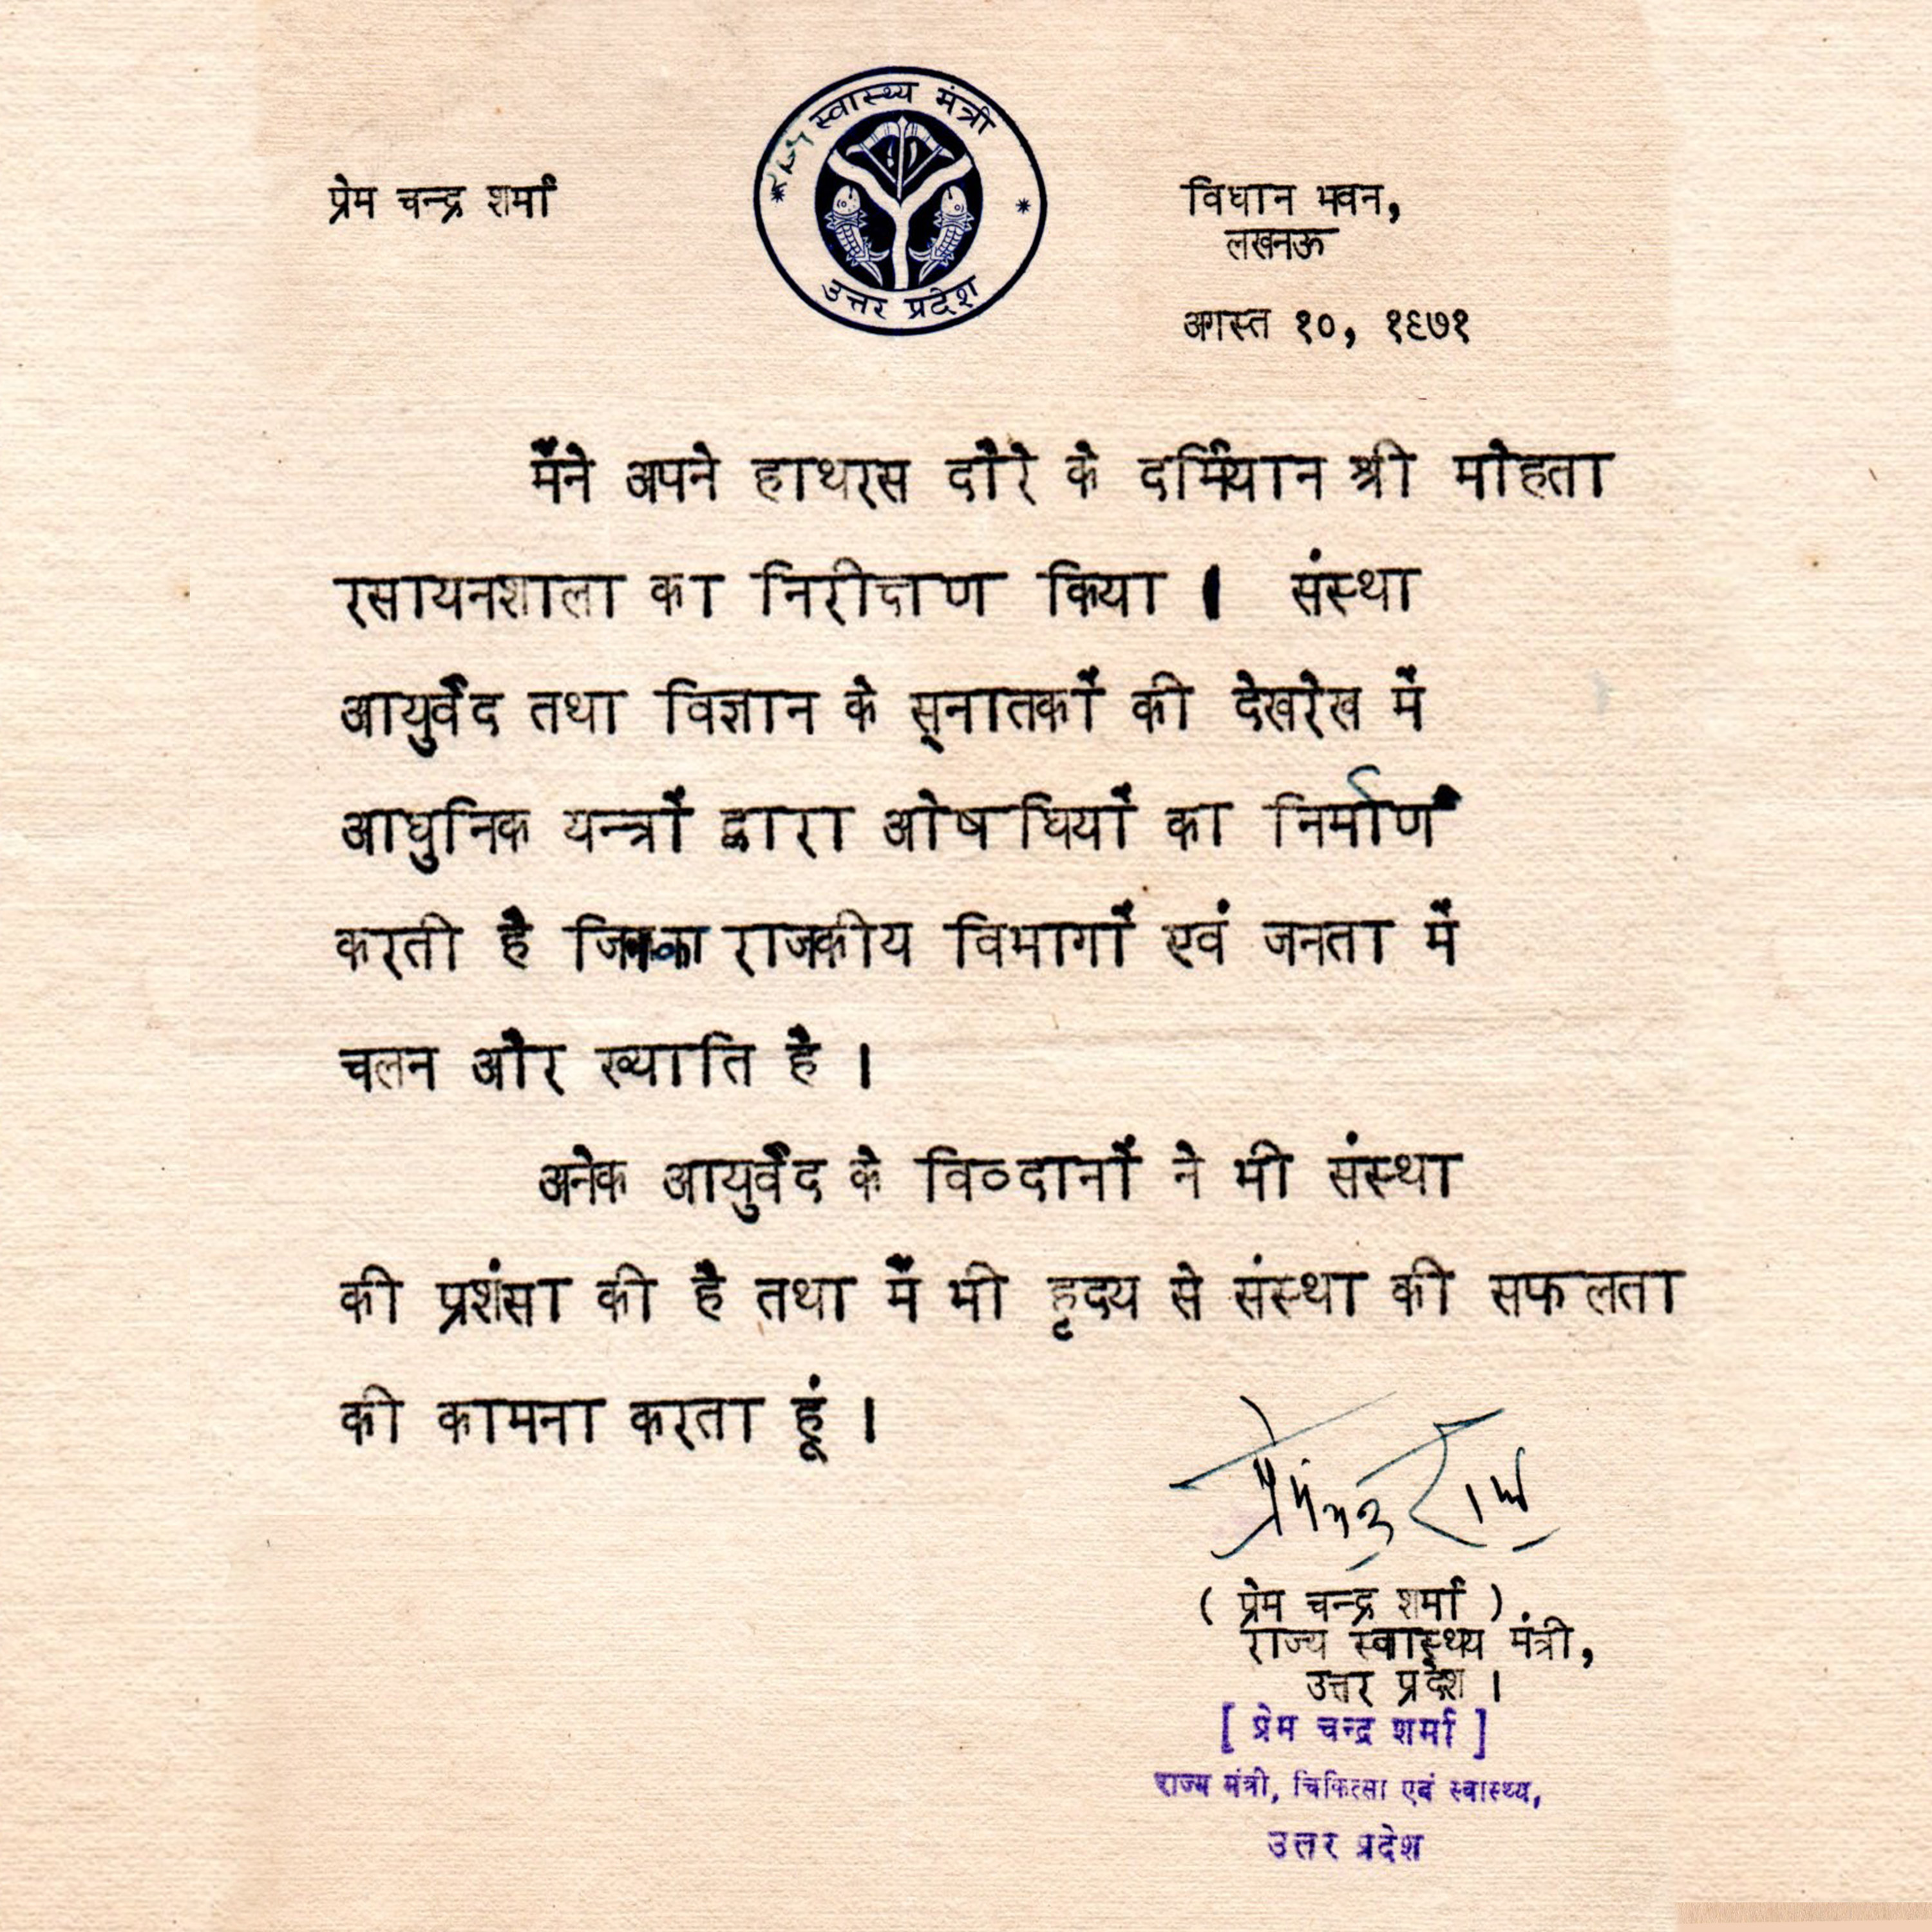 राज्य स्वास्थ्य मंत्री
उत्तर प्रदेश
प्रेम चन्द्र शर्मा
विधान भवन,
लखनऊ
अगस्त १०, १९७१
मैंने अपने हाथरस दौरे के दर्मियान श्री मोहता
रसायनशाला का निरीक्षण किया । संस्था
आयुर्वेद तथा विज्ञान के स्नातकों की देखरेख में
आधुनिक यन्त्रों द्वारा ओषधियों का निर्माण
करती है जिनका राजकीय विभागों एवं जनता में
चलन और ख्याति है ।
अनेक आयुर्वेद के विव्दानों ने भी संस्था
की प्रशंसा की है तथा मैं भी हृदय से संस्था की सफलता
की कामना करता हूं ।
( प्रेम चन्द्र शर्मा )
राज्य स्वास्थ्य मंत्री,
उत्तर प्रदेश ।
[ प्रेम चन्द्र शर्मा ]
राज्य मंत्री, चिकित्सा एवं स्वास्थ्य,
उत्तर प्रदेश